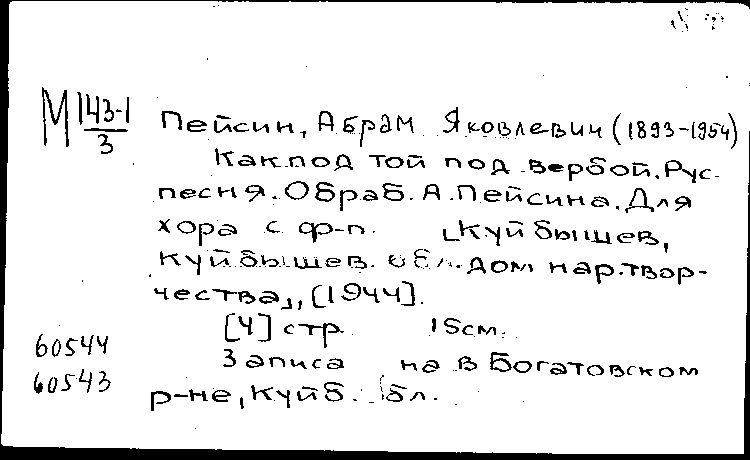 М 143-1
3
Пейсин, Абрам Яковлевич (1893-1954)
Как под той под вербой. Рус.
песня. Обраб. А. Пейсина. Для
хора с ф-п. [Куйбышев,
Куйбышев. обл. дом нар. твор-
чества], [1944].
[4] стр. 15см.
Записа на в Богатовском
р-не, Куйб. бл.
60544
60543